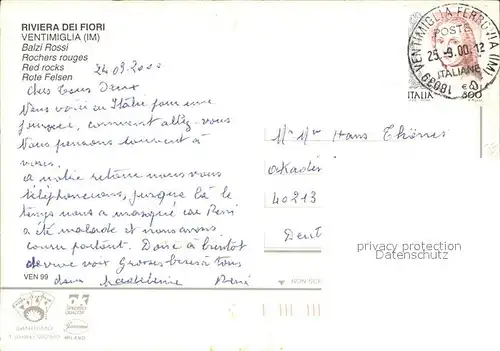 RIVIERA DEI FIORI
VENTIMIGLIA (IM)
Balzi Rossi
Rochers rouges
Red rocks
Rote Felsen
24.09.2000
Chers tous Deux
Nous voici en Italie pour une
journée, comment allez-vous
Nous pensons souvent à
vous.
a notre retour nous vous
téléphonerons, jusque là le
temps nous a manqué car René
a été malade et nous avons
couru partout. Donc à bientôt
de vive voix Grosses bises à tous
deux René
VEN 99
18039 VENTIMIGLIA FERROVIA (IM)
POSTE
25.-9.00.12
ITALIANE
ITALIA
800
Mr Mme Hans
40213
privacy protection
Datenschutz
MILANO